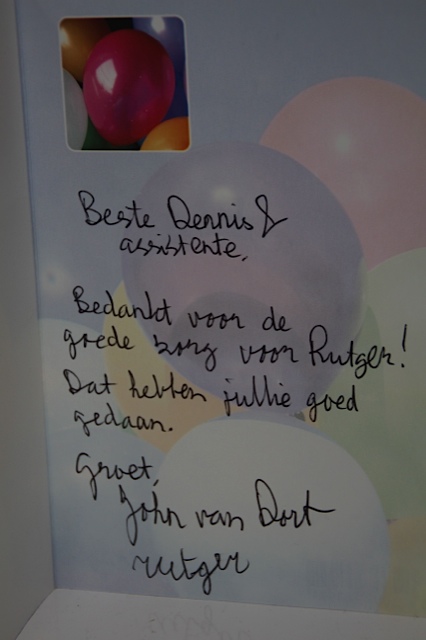 Beste Dennis &
assistente,
Bedankt voor de
goede zorg voor Rutger!
Dat hebben jullie goed
gedaan.
Groet,
John van Dort
rutger